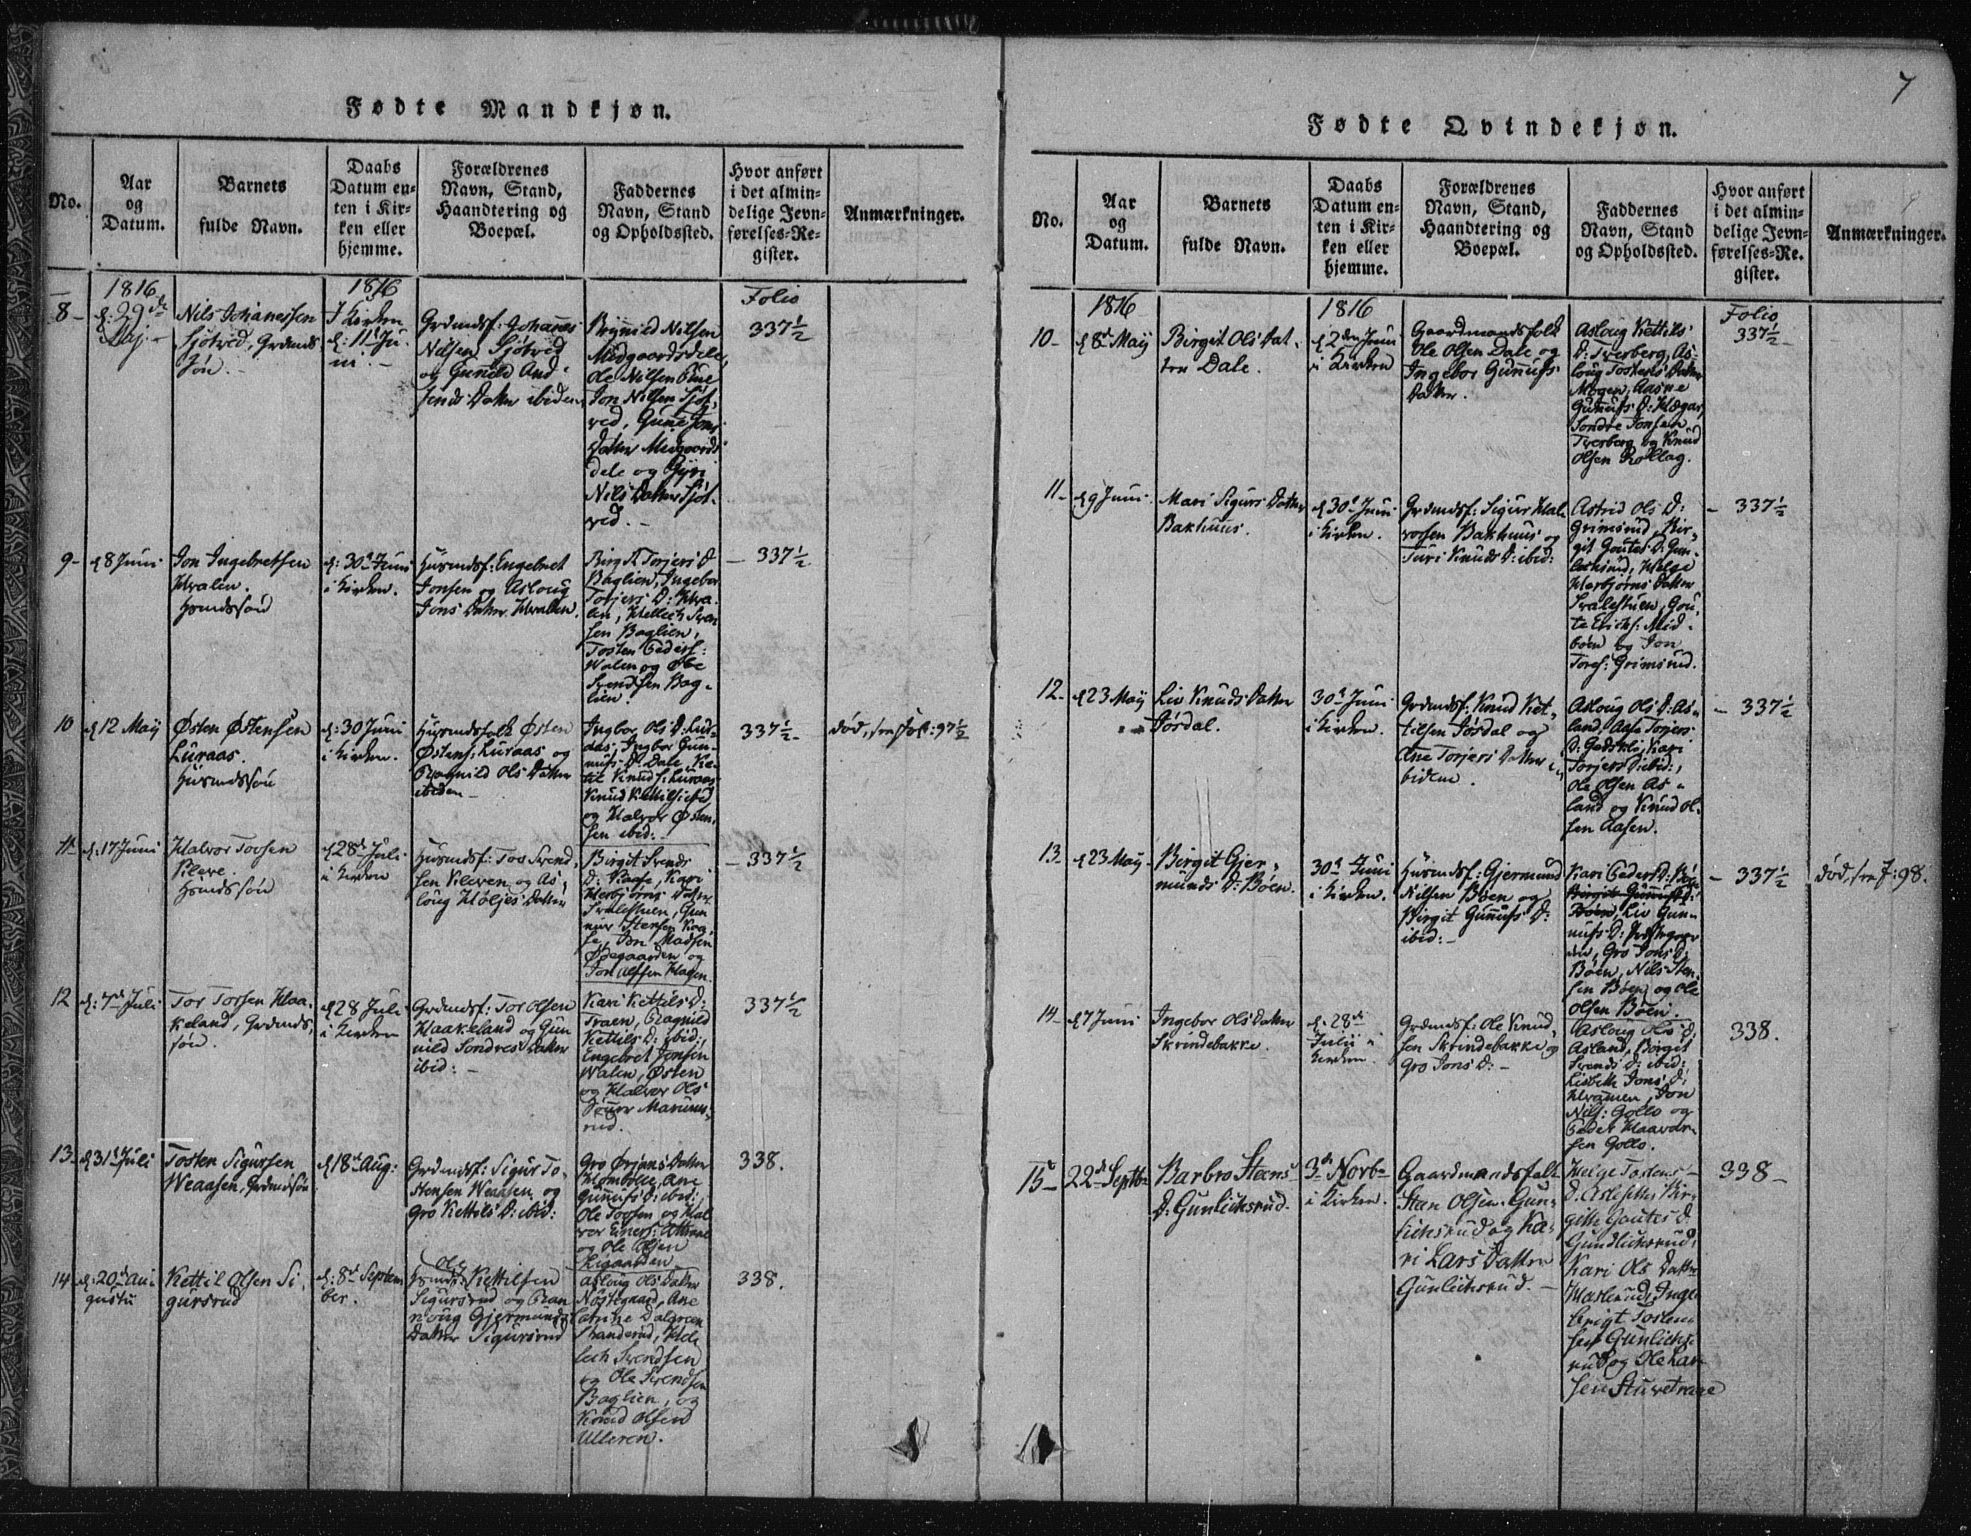 7
Fødte Mandkjøn.
No.
Aar
og
Datum.
Barnets
fulde Navn.
Daabs
Datum en-
ten i Kir-
ken eller
hjemme.
Forældrenes
Navn, Stand,
Haandtering og
Boepæl.
Faddernes
Navn, Stand
og Opholdssted.
Hvor anført
i det almin-
delige Jevn-
førelses-Re-
gister.
Anmærkninger.
1816
1816
Folio
8-
d: 29de
Maj.-
Nils Johannessen
Sjøtved, Grdmds
Søn.-
I Kirken
d: 11t Ju-
ni.-
Grdmdsf: Johannes
Nilsen Sjøtved
og Gunild And-
Datter ibidem
Brynild Nilsen
Midgaardsdele,
Ole Nilsen
Jon Nilsen Sjøt-
ved, Gune Jons
Datter Midgaards
dele og Gyri
Nils Datter Sjøt-
ved.-
337½
9-
d 8 Juni
Jon Ingebretsen
Hvalen.
Hsmdssøn
d: 30t Juni
i Kirken.
Husmdsf: Engebret
Jonsen og Asloug
Jons Datter Hvalen.
Birgit Torjers D
Baglien, Ingebor
Torjers D: Hva-
len, Hellech Sven
sen Baglien,
Tosten Geders:
Walen og
Svendsen Bag-
lien.
- 337½
10
d 12 May
Østen Østensen
Luraas.
Husmdssøn
d: 30 Juni
i Kirken.
Husmdsfolk Østen
Østens: Luraas og
Ragnild Ols Datter
ibiden-
Ingbor Ols D: Lur-
aas, Ingbor Gun-
nufs D: Dale, Ke-
til Knuds: Luraas
Knud Kettils: ibid
og Halvor Østen-
sen ibid:-
337½-
død, see fol: 97½
11
d: 17 Juni
Halvor Torsen
Kleve.
Hsmdssøn
d 28de Juli
i Kirken
Husmdsf: Tor Svend-
sen Kleven og As-
loug Høljes Datter
Birgit Svends
D: Kaase, Kari
Herbjørns Datter
Svalestuen, Gun-
nur Stensen Kaa-
se, Jon Madsen
Øvegaarden og
Jon Hagen.
- 337½
12
d: 7de Juli
Tor Torsen Haa-
keland, Grdmds,
søn.
d 28 Juli
i Kirken
Grdmdsf: Tor Olsen
Haakeland og Gun
nild Sondres Datter
ibid:-
Kari Kettils D:
Traen, Ragnild
Kettils D: ibid:
Engebret Jonsen
Walen, Østen
og Halvor Ols
Sønner Marums-
rud.
337½
13-
d 31t Juli
Tosten Sigursen
Weaasen, Grdmdssøn
d 18de Aug:
Grdmdsf: Sigur To-
stensen Weaasen og
Gro Kettils D: ibid:
Gro Ørjans Datter
Ane
Gunnufs D: ibid:,
Ole Torsen og Hal
vor Eners:
og Ole Olsen
338.
14
d: 20de Au-
gusti
Kettil Olsen Si-
gursrud
d: 8de Septem
ber.
Ole
Hsmdsf: Kettilsen
Sigursrud og Ran
noug Gjermunds
Datter Sigursrud
Asloug Ols Datter
Nøstegaard, Ane
Hel-
lech Svendsen
og Ole Svendsen
Baglien, og
Knud Olsen
Ulleren.
338.
Fødte Qvindekjøn.
No.
Aar
og
Datum.
Barnets
fulde Navn.
Daabs
Datum en-
ten i Kir-
ken eller
hjemme.
Forældrenes
Navn, Stand,
Haandtering og
Boepæl.
Faddernes
Navn, Stand
og Opholdssted.
Hvor anført
i det almin-
delige Jevn-
førelses-Re-
gister.
Anmærkninger.
1816
1816
Folio
10-
d 8de May
Birgit Ols Dat-
ter Dale.
d 2den Juni
i Kirken
Gaardmandsfolk
Ole Olsen Dale og
Ingebor Gunnufs
Datter.
Asloug Kettils
D: Tverberg, As-
loug Tostens Datter
Mogen, Aasne
Gunnufs D: Hægar
Sondre Jonsen
Tverberg og Knud
Olsen Rollag.
337½-
11-
d 9 Juni
Mari Sigurs Datter
Bakhuus.
d 30t Juni
i Kirken.
Grdmdsf: Sigur Hal-
vorsen Bakhuus og
Turi Knuds D: ibid:
Astrid Ols D:
Grimsrud, Bir-
git Goutes D: Gun-
Helge
Herbjørns Datter
Svalestuen, Gou-
te Erichs: Mid-
bøen og Jon
Tores: Grimsrud.
- 337½
12-
d 23 May
Liv Knuds Datter
Jørdal.
30t Juni
i Kirken.
Grdmdsf: Knud Ket-
tilsen Jørdal og
Ane Torjers Datter i-
bidem.
Asloug Ols D: As-
land, Aase Torjers
D: Kari
Torjers D: ibid:,
Ole Olsen As-
land og Knud Ol-
sen Aasen.
- 337½
13-
d 23 May-
Birgit Gjer-
munds D: Bøen.
30t Juni
i Kirken.
Husmdsf: Gjermund
Nilsen Bøen og
Birgit Gunnufs D:
ibid:-
Kari Geders D: Bøen
Birgit Gunnufs D:
Bøen, Liv Gun-
nufs D:
Gro Jons D:
Bøen, Nils Sten-
sen Bøen og Ole
Olsen Bøen.
- 337½
død, see F: 98.
14-
d 7 Juni
Ingebor Ols Datter
Skrindebakke.
d: 28de
Julii i
Kirken
Grdmdsf: Ole Knud-
sen Skrindebakke og
Gro Jons D:-
Asloug Ols D,
Asland, Birgit
Svends D: ibid:
Lisbeth Jons D:
Hvamen, Jon
Nils: Gollo og
Geder Haavar-
sen Gollo.
338.
15-
22de Septbr
Barbro Steens
D: Gunlichsrud.
3de Novbr
i Kirken.
Gaardmandsfolk
Sten Olsen Gun-
lichsrud og Ka-
ri Lars Datter
Gunlichsrud.-
Helge Tostens
D. Bir-
gith Goutes D
Gundlichsrud,
Kari Ols Datter
Inge-
brigt Tosten-
sen Gunlichs-
rud og Ole Lar-
sen
338-